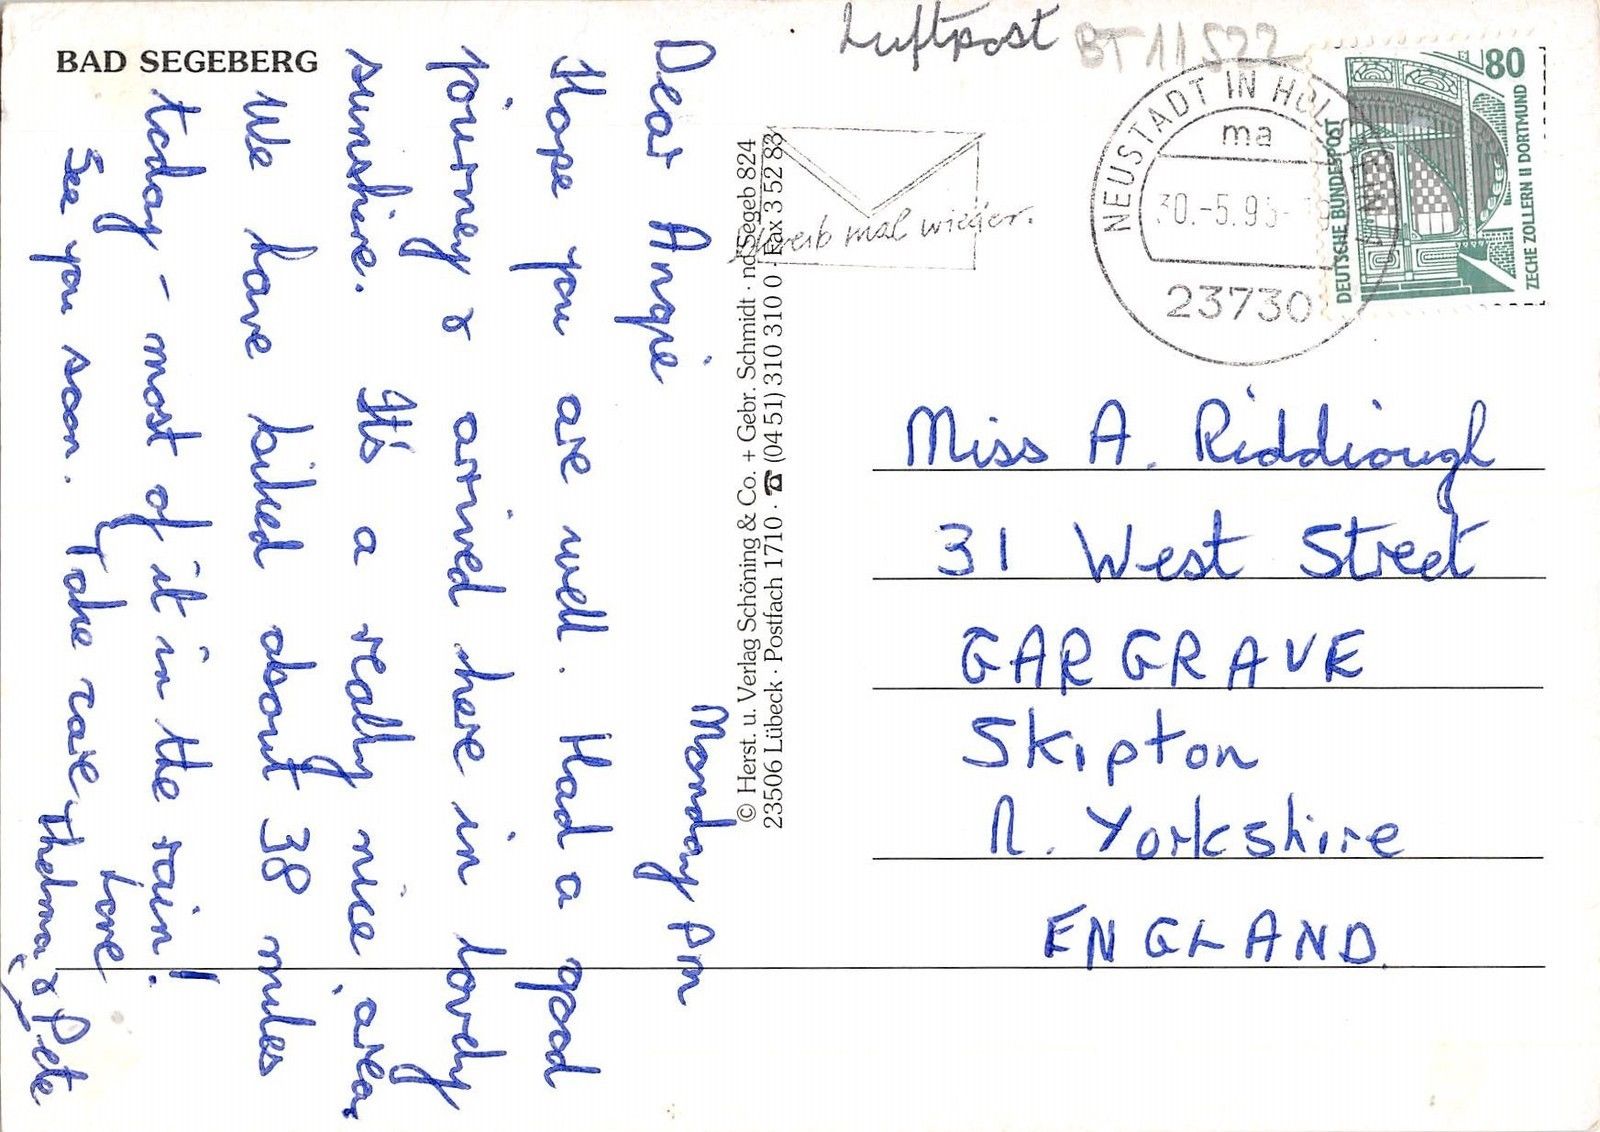 BAD SEGEBERG
Monday pm
Dear Angie
Hope you are well. Had a good
journey & arrived here in lovely
sunshine. It's a really nice area,
We have biked about 38 miles
today - most of it in the rain!
See you soon. Take care, Love
Thelma & Pete
© Herst. u. Verlag Schöning & Co. + Gebr. Schmidt · nd/Segeb 824
23506 Lübeck · Postfach 1710 · ☎ (04 51) 310 310 0 · Fax 3 52 83
Luftpost
BT 11 522
mal wieder.
NEUSTADT IN
ma
30.-5.9
23730
80
DEUTSCHE BUNDESPOST
ZECHE ZOLLERN II DORTMUND
Miss A. Riddiough
31 West Street
GARGRAVE
Skipton
N. Yorkshire
ENGLAND.